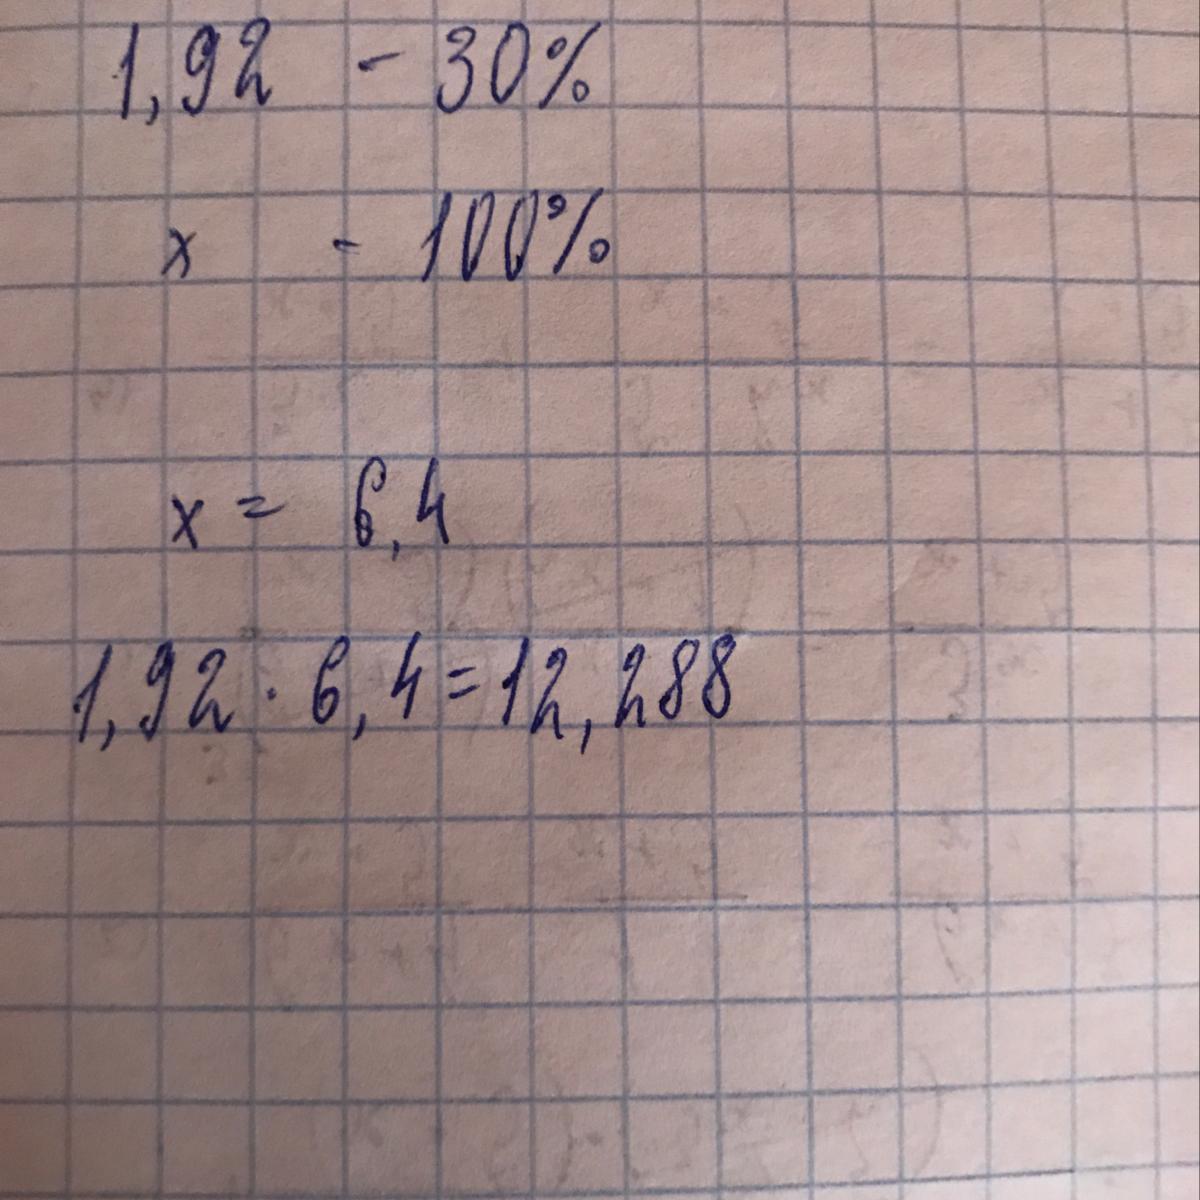 1,92 - 30%
x - 100%
x = 6,4
1,92 · 6,4 = 12,288